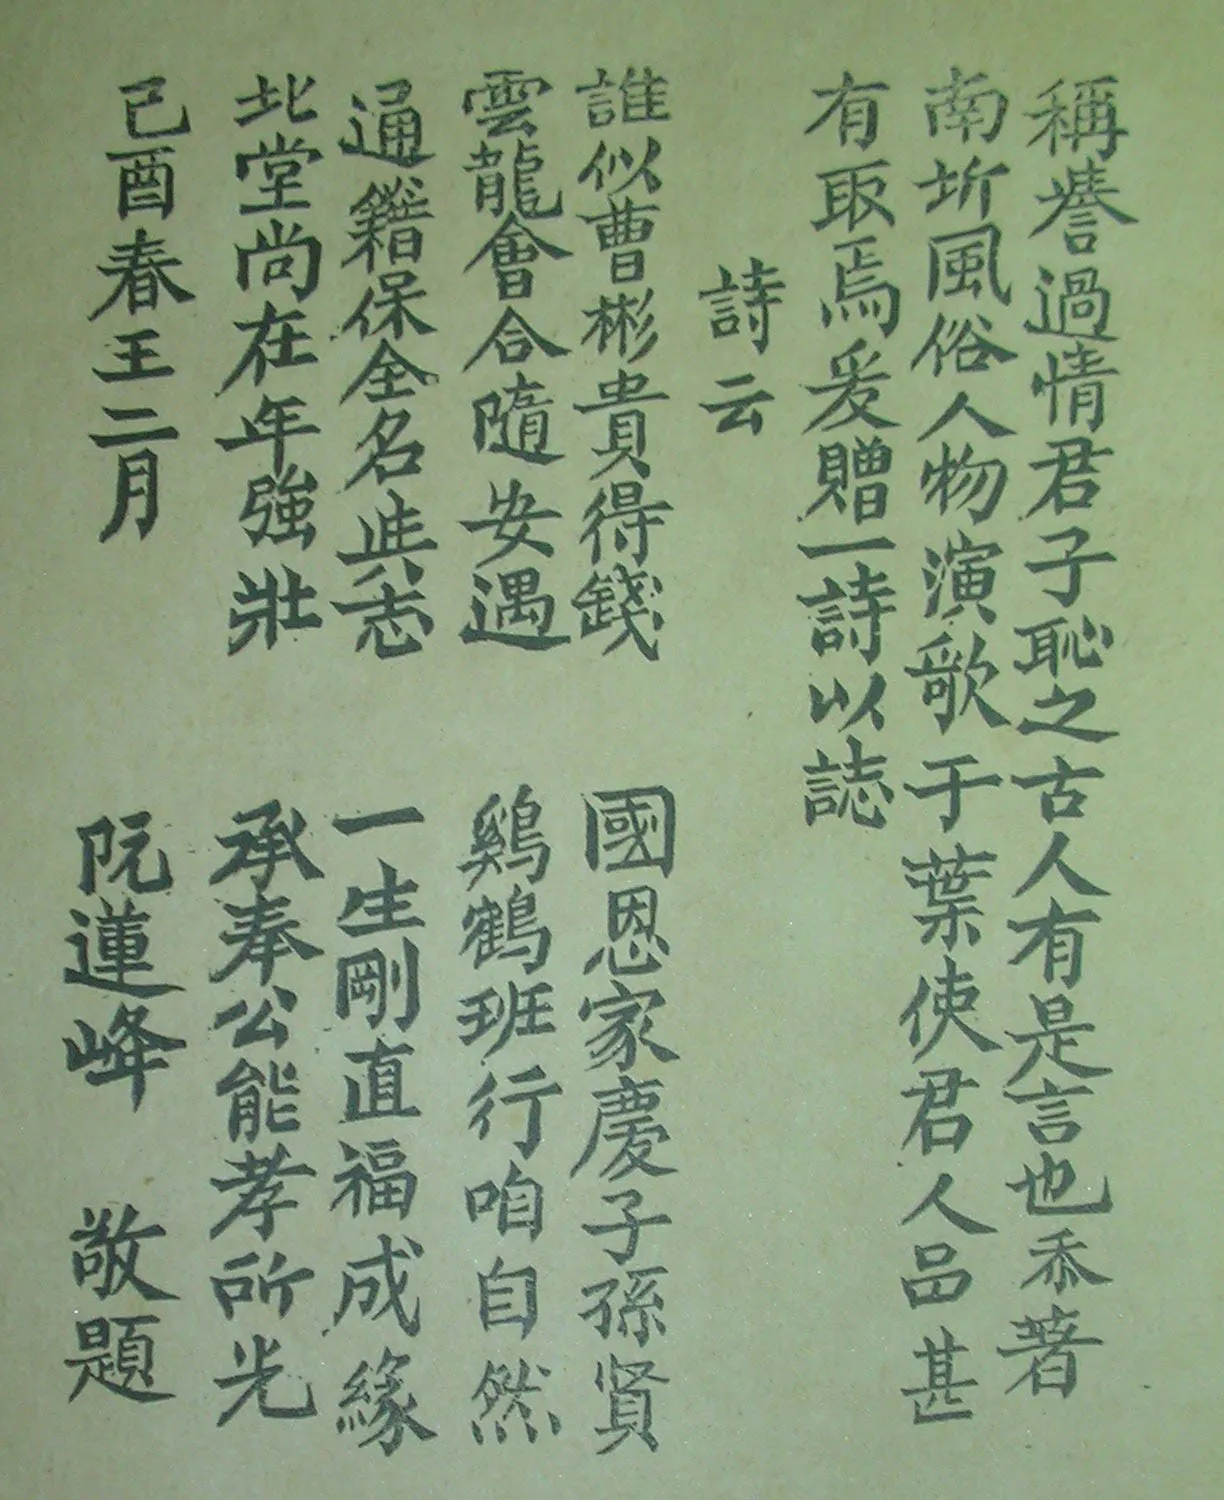 稱譽過情君子恥之古人有是言也忝著
南圻風俗人物演歌于葉使君人品甚
有取焉爰贈一詩以誌
詩云
誰似曹彬貴得錢 國恩家慶子孫賢
雲龍會合隨安遇 鷄鶴班行咱自然
通籍保全名與志 一生剛直福成緣
北堂尚在年強壯 承奉公能孝所光
已酉春王二月 阮蓮峰 敬題